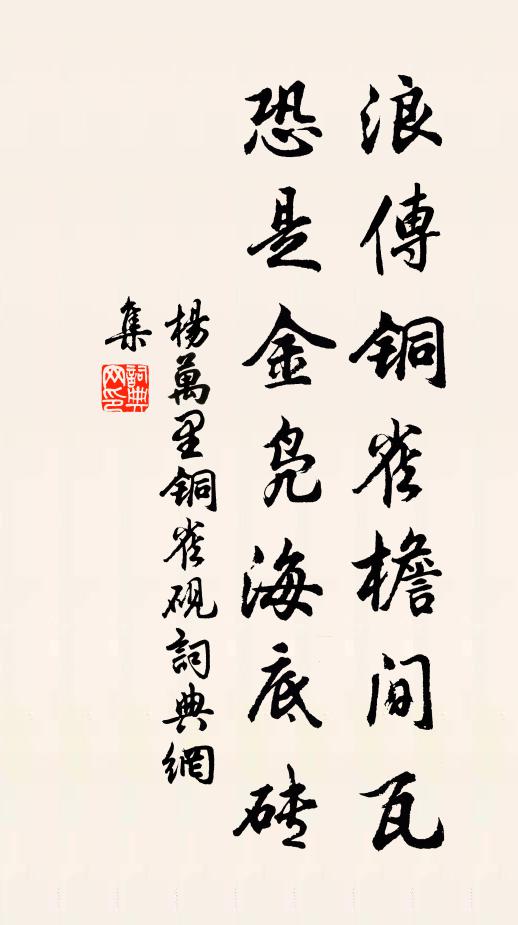 浪傳銅雀檐間瓦
恐是金凫海底砖
楊萬里銅雀硯詞典網
集
詞典网印